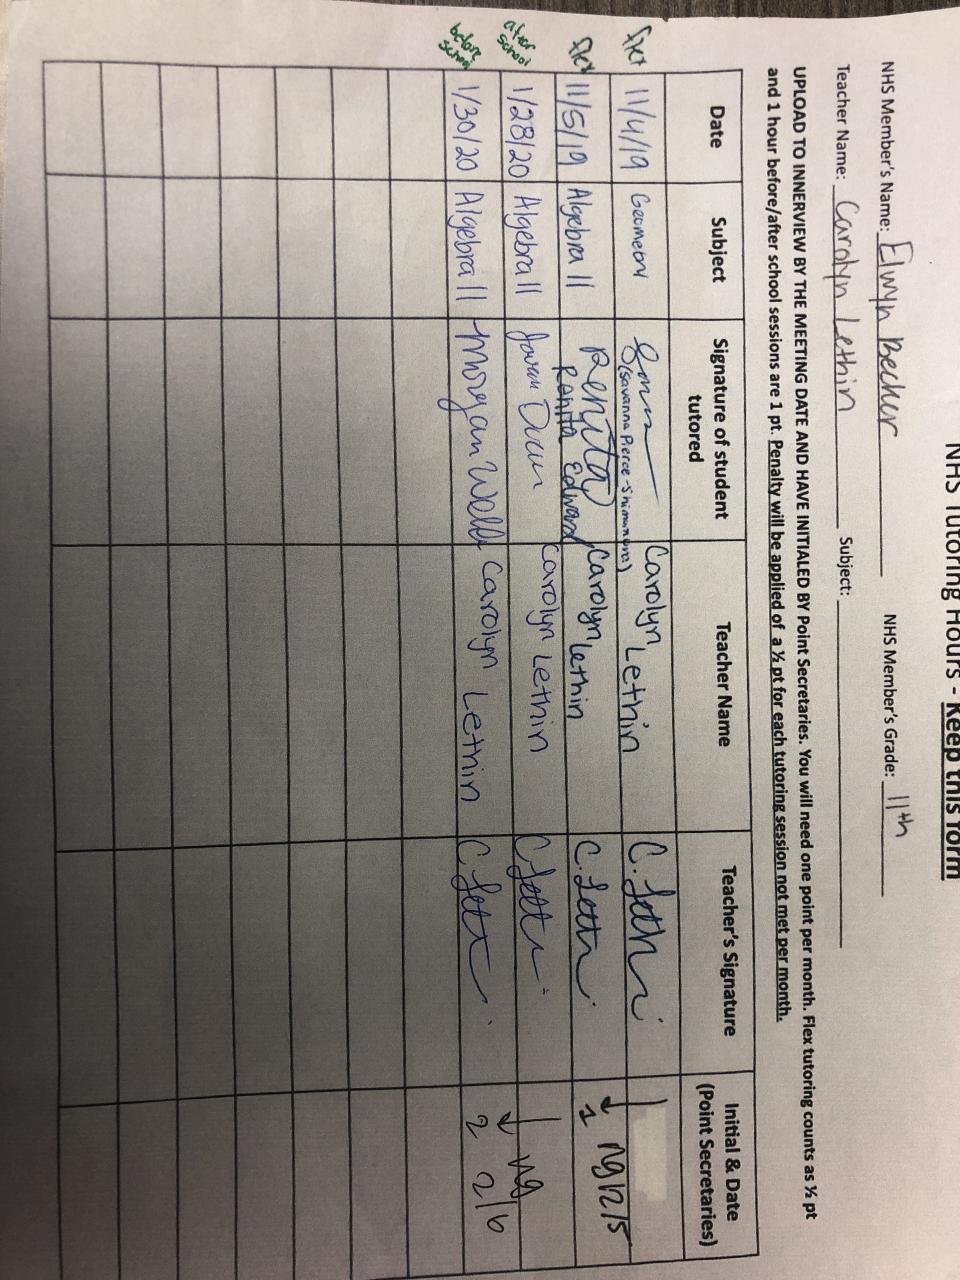 NHS Tutoring Hours - Keep this form
NHS Member's Name: Elwyn Becker NHS Member's Grade: 11th
Teacher Name: Carolyn Lethin Subject:
UPLOAD TO INNERVIEW BY THE MEETING DATE AND HAVE INITIALED BY Point Secretaries. You will need one point per month. Flex tutoring counts as ½ pt
and 1 hour before/after school sessions are 1 pt. Penalty will be applied of a ½ pt for each tutoring session not met per month.
Date Subject Signature of student tutored Teacher Name Teacher's Signature Initial & Date (Point Secretaries)
flex 11/4/19 Geometry (Savanna Pierce-Shimomura) Carolyn Lethin C. Leth
flex 11/5/19 Algebra II Renita Renita Edward Carolyn Lethin C. Leth 1 ng 12/5
after school 1/28/20 Algebra II Carolyn Lethin C Leth
before school 1/30/20 Algebra II Morgan Webb Carolyn Lethin C Leth 2 ng 2/6